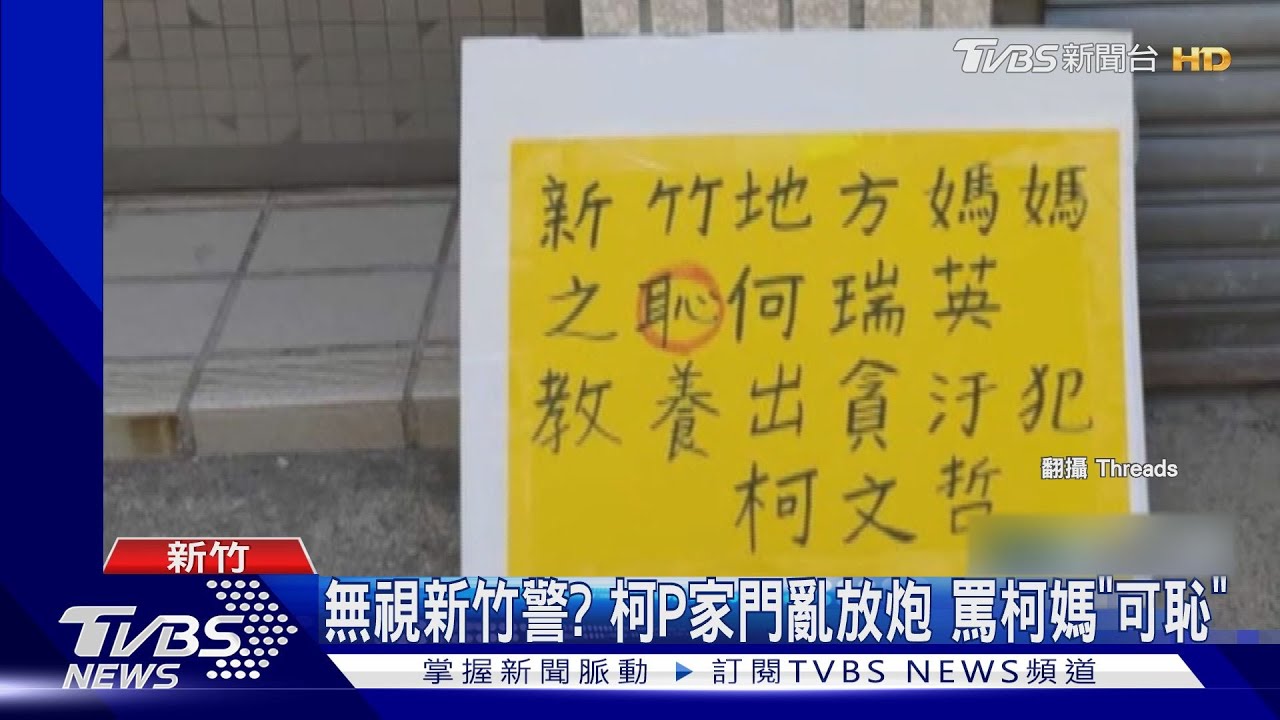 TVBS新聞台 HD
新竹地方媽媽
之恥何瑞英
教養出貪汙犯
柯文哲
翻攝 Threads
新竹
無視新竹警? 柯P家門亂放炮 罵柯媽"可恥"
TVBS NEWS
掌握新聞脈動 ▶ 訂閱TVBS NEWS頻道